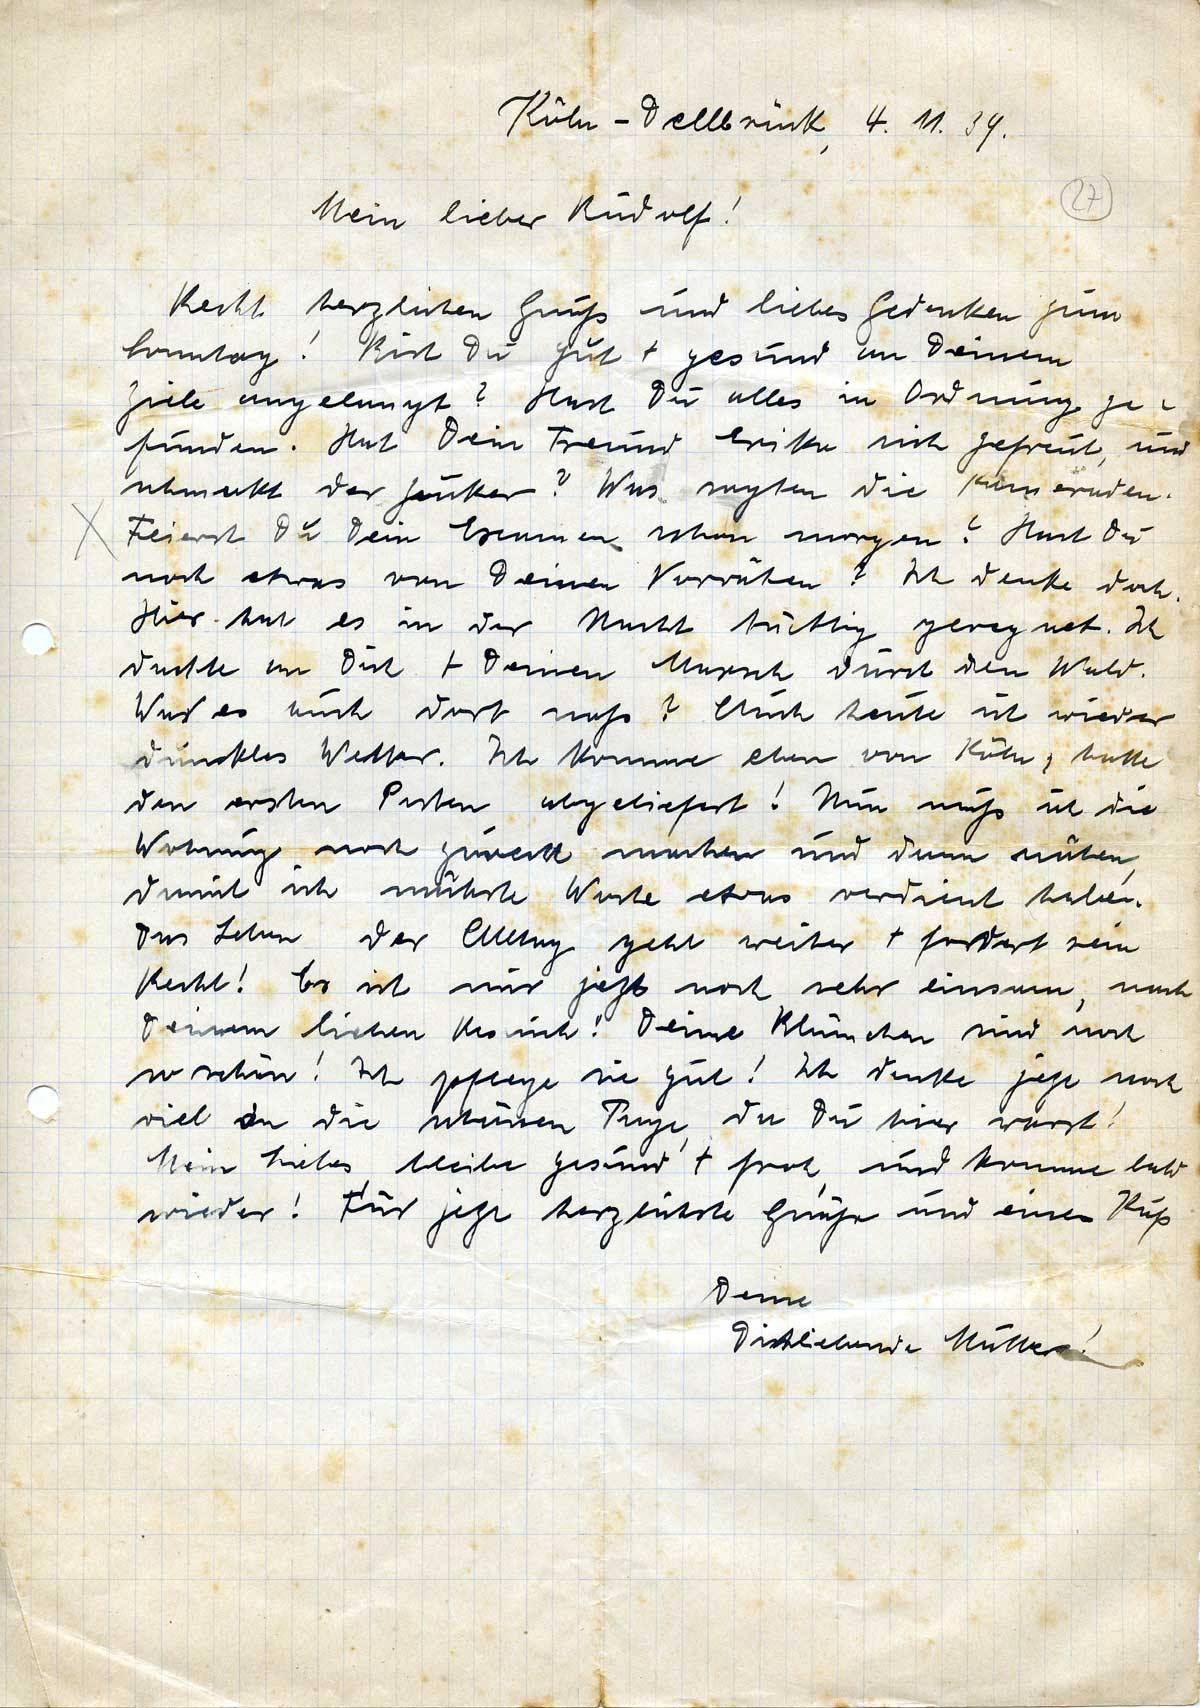 Köln-Dellbrück, 4. 11. 39.
27
Mein lieber Rudolf!
Recht herzlichen Gruß und liebes Gedenken zum
Sonntag! Bist Du gut + gesund an Deinem
Ziele angelangt? Hast Du alles in Ordnung ge-
funden. Hat Dein Freund sich gefreut, und
schmeckt der ? Was sagten die Kameraden.
Feierst Du Dein Examen schon morgen? Hast Du
noch etwas von Deinen Vorräten? Ich denke doch.
Hier hat es in der Nacht tüchtig geregnet. Ich
dachte an Dich + Deinen Marsch durch den Wald.
War es auch dort naß? Auch heute ist wieder
dunkles Wetter. Ich komme eben von Köln, hatte
den ersten Posten abgeliefert! Nun muß ich die
Wohnung noch zurecht machen und dann nähen,
damit ich nächste Woche etwas verdient habe.
Das Leben der Alltag geht weiter + fordert sein
Recht! Es ist nur jetzt noch sehr einsam, nach
Deinem lieben Besuch! Deine Blümchen sind noch
so schön! Ich pflege sie gut! Ich denke jetzt noch
viel an die schönen Tage, da Du hier warst!
Mein Liebes bleibe gesund + froh, und komme bald
wieder! Für jetzt herzlichste Grüße und einen Kuß
Deine
Dichliebende Mutter!